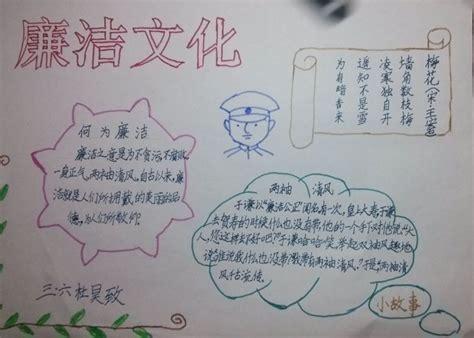 廉洁文化
何为廉洁
廉洁之意是为不贪污不腐败,
一身正气,两袖清风,自古以来,廉
洁就是人们所拥戴的美丽的品
德,为人们所敬仰。
三六杜昊致
梅花(宋·王安
墙角数枝梅
凌寒独自开
遥知不是雪
为有暗香来
两袖 清风
于谦以"廉洁公正"闻名有一次,皇上大寿于谦
去贺寿的时候什么也没有带他的一个
人,您这样好吧?于谦哈哈笑,举起双袖风趣地
说谁说我什么也没带,我带有两袖清风!于是"两袖清
风估流传。
小故事